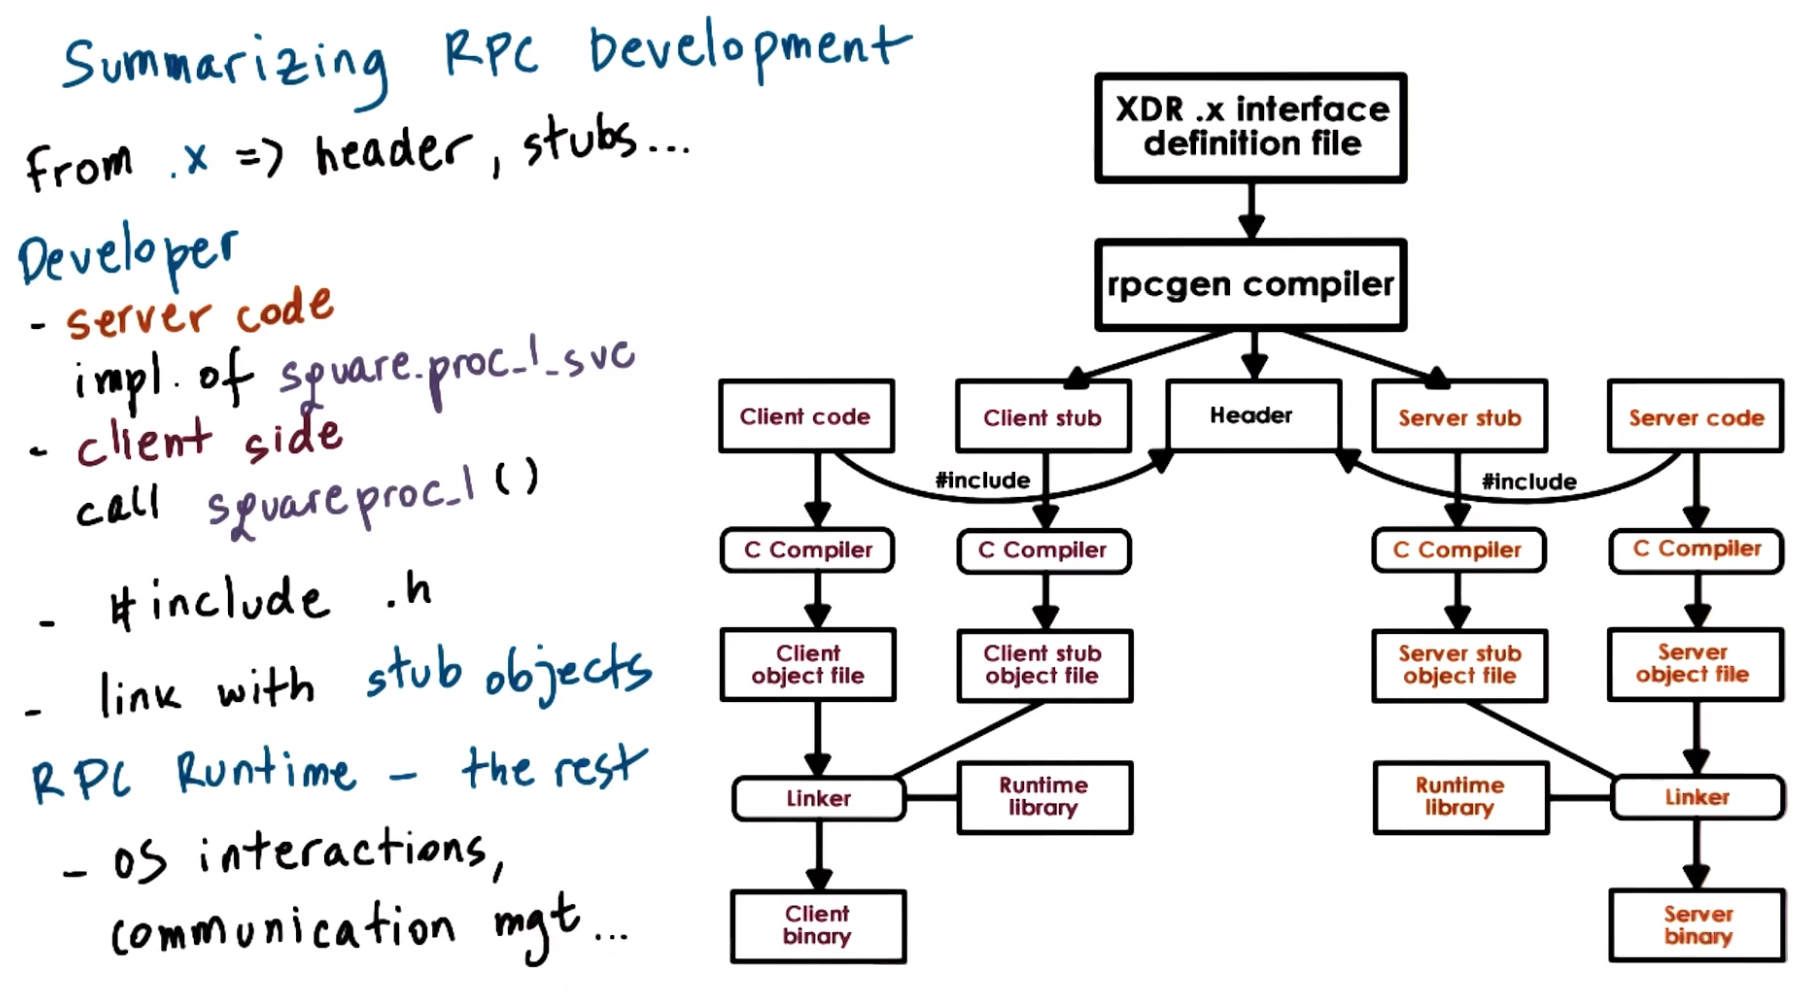 Summarizing RPC Development
From .x => header, stubs...
Developer
- server code
impl. of square_proc_1_svc
- client side
call squareproc_1()
- #include .h
- link with stub objects
RPC Runtime - the rest
- OS interactions,
communication mgt...
XDR .x interface
definition file
rpcgen compiler
Client code
Client stub
Header
Server stub
Server code
#include
#include
C Compiler
C Compiler
C Compiler
C Compiler
Client
object file
Client stub
object file
Server stub
object file
Server
object file
Linker
Runtime
library
Runtime
library
Linker
Client
binary
Server
binary